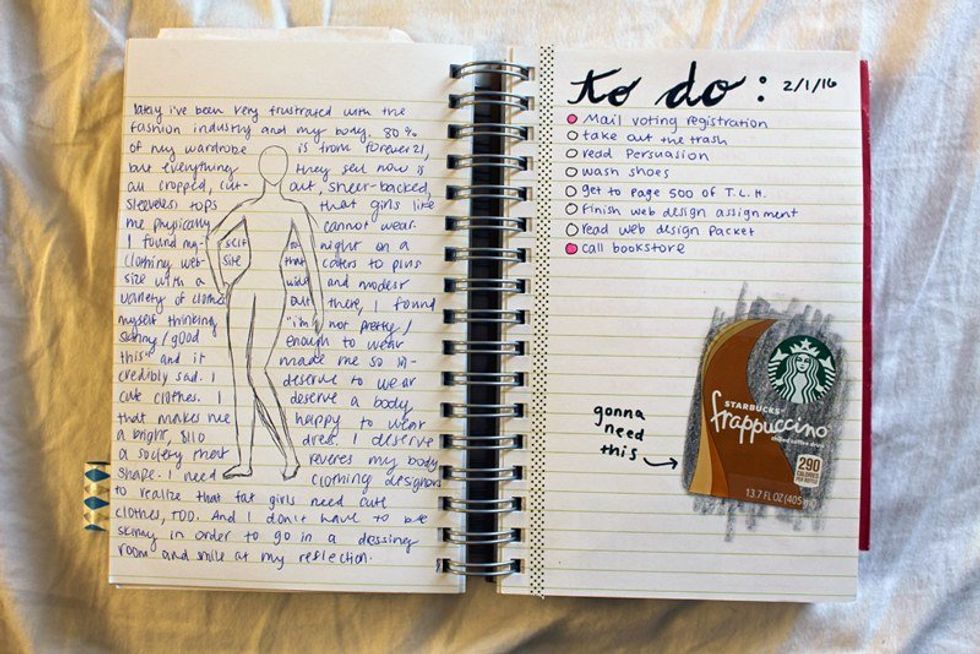 lately i've been very frustrated with the
fashion industry and my body. 80%
of my wardrobe is from forever 21,
but everything they sell now is
all cropped, cut- out, sheer-backed,
sleeveless tops that girls like
me physically cannot wear.
I found my- self so night on a
clothing web- site that caters to plus
size with a wide and modest
variety of clothes out there, I found
myself thinking "i'm not pretty/
skinny/good enough to wear
this" and it made me so in-
credibly sad. I deserve to wear
cute clothes. I deserve a body
that makes me happy to wear
a bright, $110 dress. I deserve
a society that reveres my body
shape. I need clothing designers
to realize that fat girls need cute
clothes, TOO. And I don't have to be
skinny in order to go in a dressing
room and smile at my reflection.
to do: 2/1/16
Mail voting registration
take out the trash
read Persuasion
wash shoes
get to page 500 of T.L.H.
finish web design assignment
read web design packet
call bookstore
gonna
need
this
STARBUCKS
frappuccino
chilled coffee drink
290
CALORIES
PER BOTTLE
13.7 FL OZ (405